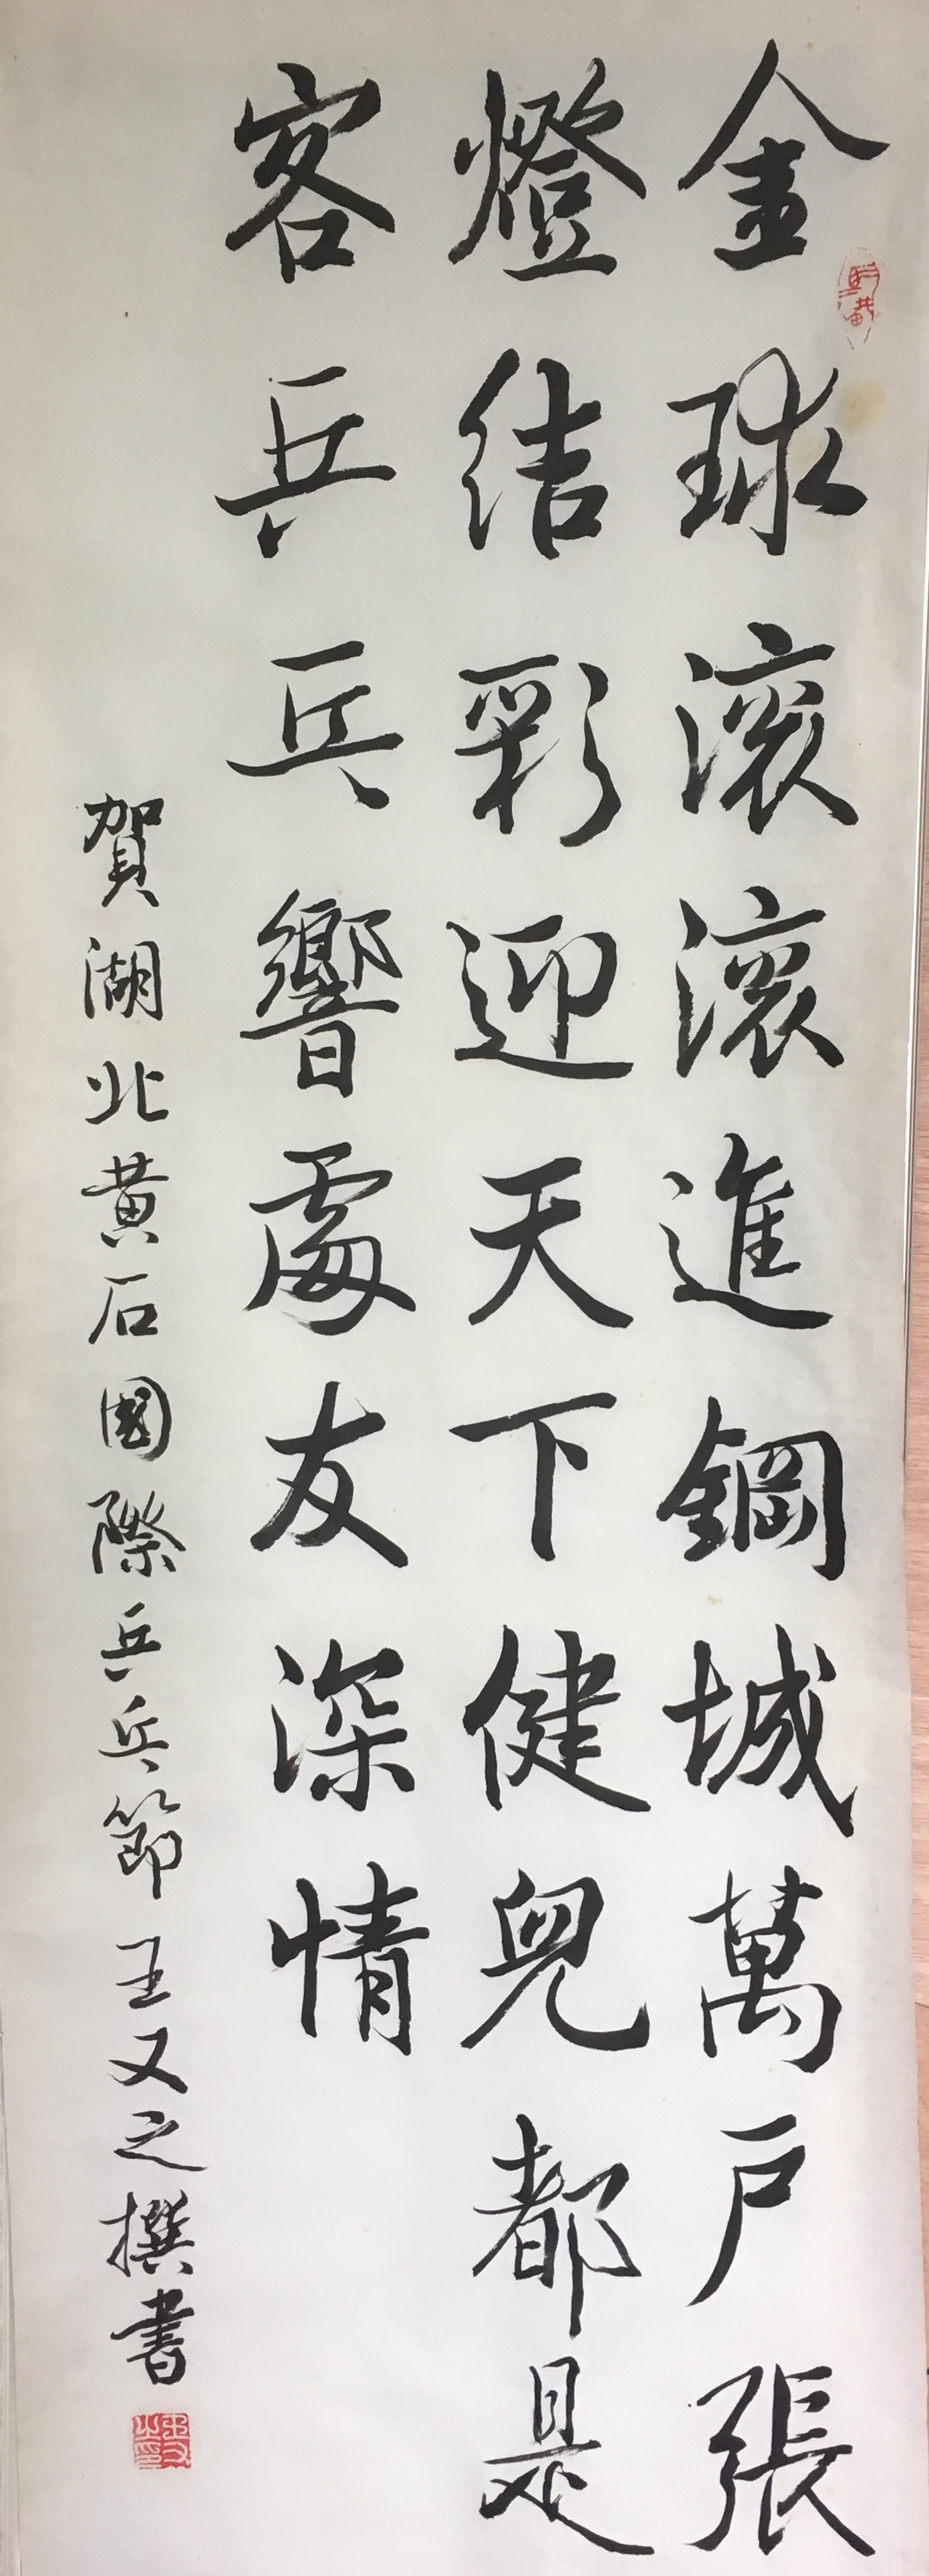 金球滚滚進鋼城萬戶張
燈结彩迎天下健兒都是
客乒乓響處友深情
賀湖北黄石國際乒乓節王又之撰書